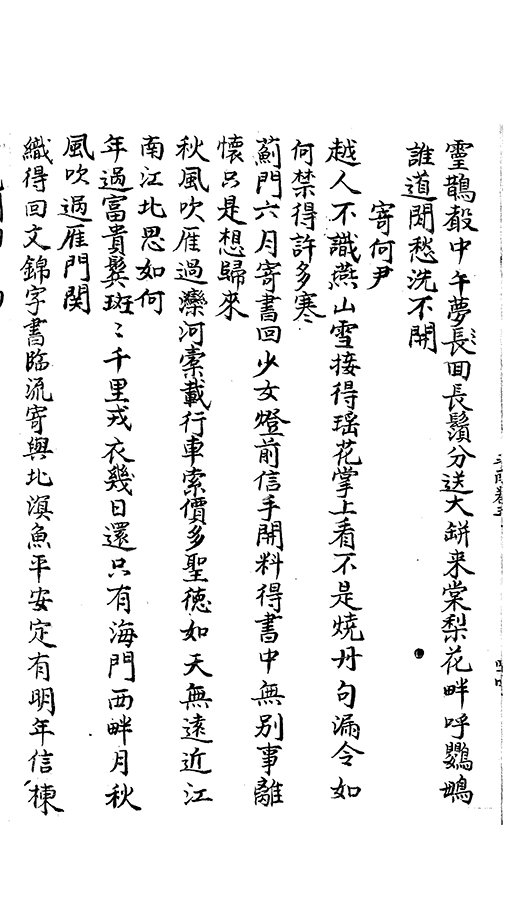 靈鵲聲中午夢長回長鬚分送大缾来棠梨花畔呼鸚鵡
誰道閒愁洗不開
寄何尹
越人不識燕山雪接得瑶花掌上看不是燒丹句漏令如
何禁得許多寒
薊門六月寄書回少女燈前信手開料得書中無别事離
懷只是想歸來
秋風吹雁過灤河槖載行車索價多聖徳如天無遠近江
南江北思如何
年過富貴鬂斑〻千里戎衣幾日還只有海門西畔月秋
風吹過雁門関
織得回文錦字書臨流寄與北溟魚平安定有明年信棟